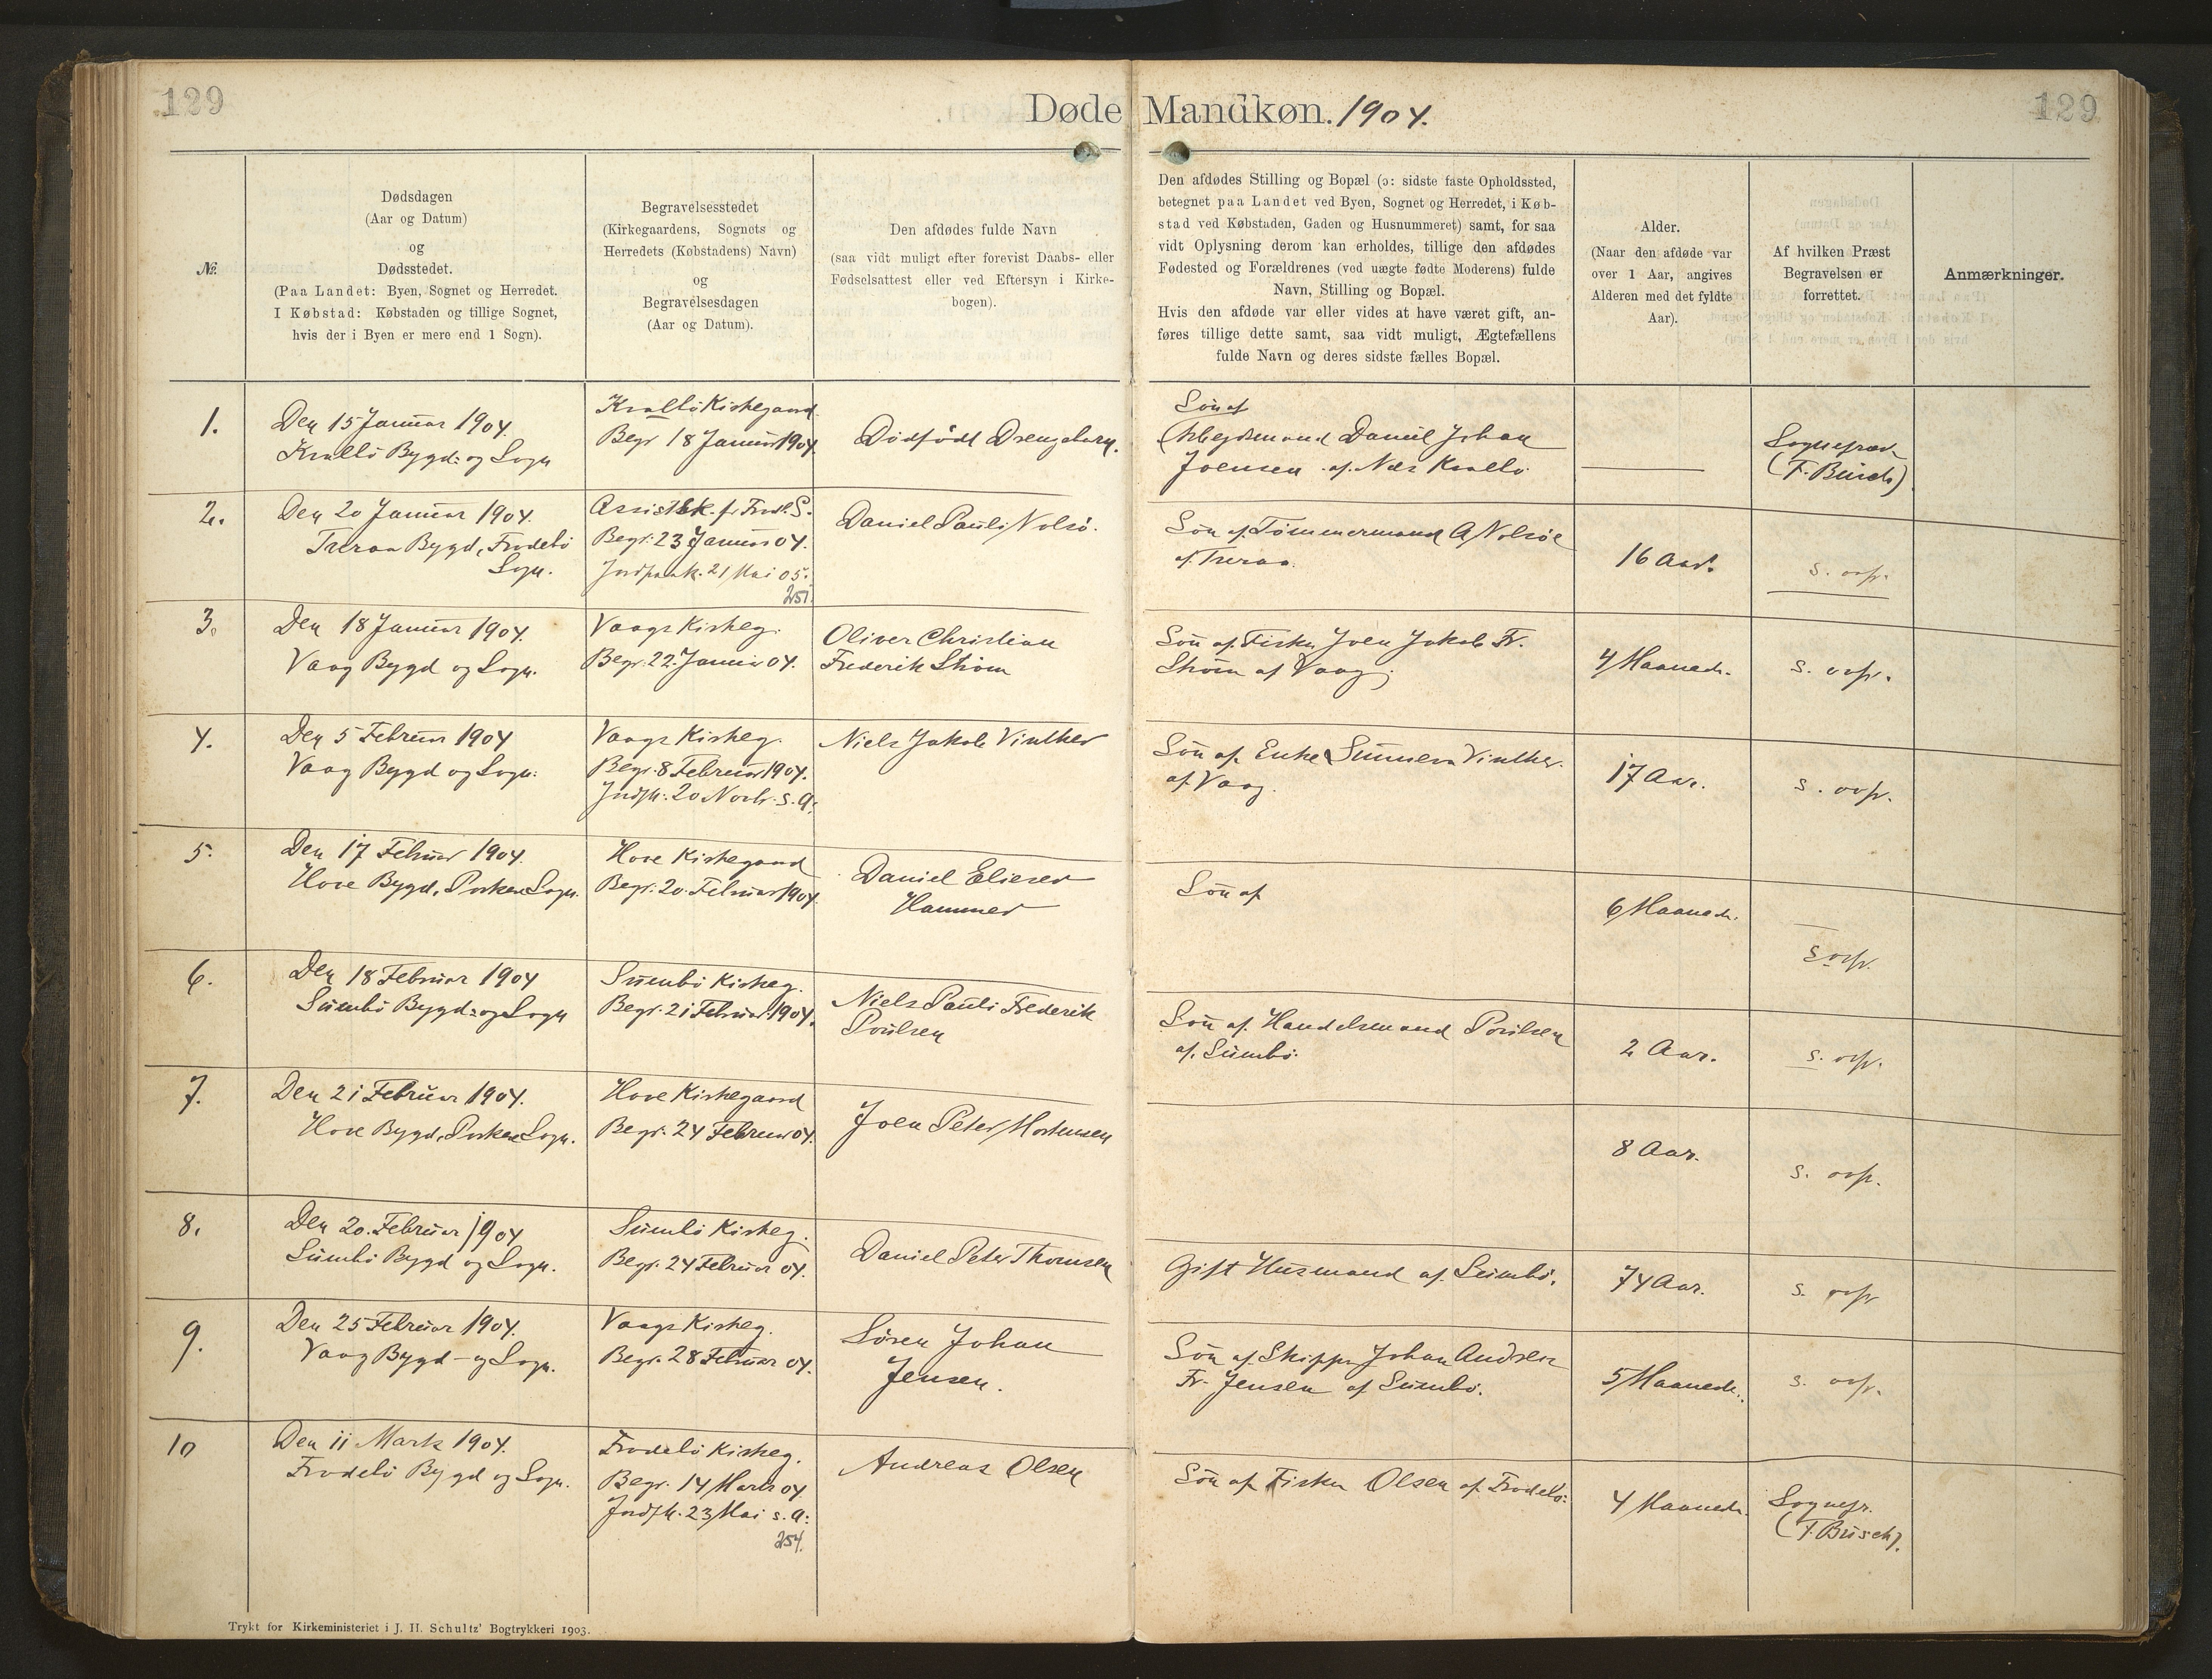 129
Døde Mandkøn. 1904.
129
№.
Dødsdagen
(Aar og Datum)
og
Dødsstedet.
(Paa Landet: Byen, Sognet og Herredet.
I Købstad: Købstaden og tillige Sognet,
hvis der i Byen er mere end 1 Sogn).
Begravelsesstedet
(Kirkegaardens, Sognets og
Herredets (Købstadens) Navn)
og
Begravelsesdagen
(Aar og Datum).
Den afdødes fulde Navn
(saa vidt muligt efter forevist Daabs- eller
Fødselsattest eller ved Eftersyn i Kirke-
bogen).
Den afdødes Stilling og Bopæl (ɔ: sidste faste Opholdssted,
betegnet paa Landet ved Byen, Sognet og Herredet, i Køb-
stad ved Købstaden, Gaden og Husnummeret) samt, for saa
vidt Oplysning derom kan erholdes, tillige den afdødes
Fødested og Forældrenes (ved uægte fødte Moderens) fulde
Navn, Stilling og Bopæl.
Hvis den afdøde var eller vides at have været gift, an-
føres tillige dette samt, saa vidt muligt, Ægtefællens
fulde Navn og deres sidste fælles Bopæl.
Alder.
(Naar den afdøde var
over 1 Aar, angives
Alderen med det fyldte
Aar).
Af hvilken Præst
Begravelsen er
forrettet.
Anmærkninger.
1.
Den 15 Januar 1904.
Kvalbö Bygd: og Sogn
Kvalbö Kirkegaard.
Begr 18 Januar 1904.
Dødfödt Drengebarn.
Sön af
Arbejdsmand Daniel Johan
Joensen af Nes Kvalbö.
Sognepræst
(F. Büsch)
2.
Den 20 Januar 1904.
Tveraa Bygd, Frodebö
Sogn.
Begr. 23 Januar 04.
Jordpaak. 21 Mai 05.
251.
Daniel Pauli Nolsö.
Sön af Tömmermand A Nolsöe
af Tveraa.
16 Aar.
s. ovfr.
3.
Den 18 Januar 1904.
Vaag Bygd og Sogn.
Vaags Kirkeg.
Begr. 22. Januar 04.
Oliver Christian
Frederik Ström
Sön af Fisker Joen Jakob Fr.
Ström af Vaag.
4 Maaneder.
s. ovfr.
4.
Den 5 Februar 1904
Vaag Bygd og Sogn.
Vaags Kirkeg.
Begr. 8 Februar 1904.
Jordpk. 20 Novbr. s. A.
Niels Jakob Vinther
Sön af Enke Sunneva Vinther
af Vaag.
17 Aar.
s. ovfr.
5.
Den 17 Februar 1904.
Hove Bygd, Porkere Sogn.
Hove Kirkegaard
Begr. 20. Februar 1904
Daniel Elieser
Hammer
Sön af
6 Maaneder.
s. ovfr.
6.
Den 18 Februar 1904
Sumbö Bygd: og Sogn
Sumbö Kirkeg.
Begr. 21 Februar 1904.
Niels Pauli Frederik
Poulsen
Sön af Handelsmand Poulsen
af Sumbö.
2 Aar.
s. ovfr.
7.
Den 21 Februar 1904.
Hove Bygd, Porkere Sogn.
Hove Kirkegaard
Begr. 24 Februar 04.
Joen Peter Mortensen
8 Aar.
s. ovfr.
8.
Den 20. Februar 1904
Sumbö Bygd og Sogn.
Sumbö Kirkeg.
Begr. 24 Februar 04.
Daniel Peter Thomsen
Gift Husmand af Sumbö.
74 Aar.
s. ovfr
9.
Den 25 Februar 1904.
Vaag Bygd - og Sogn.
Vaags Kirkeg.
Begr. 28 Februar 04.
Sören Johan
Jensen.
Sön af Skipper Johan Andreas
Fr. Jensen af Sumbö.
5 Maaneder.
s. ovfr.
10
Den 11 Marts 1904.
Frodebö Bygd og Sogn.
Frodebö Kirkeg.
Begr. 14 Marts 04.
Jordpk. 23 Mai s. A.
254.
Andreas Olsen
Sön af Fisker Olsen af Frodebö.
4 Maaneder.
Sognepr.
(F. Büsch).
Trykt for Kirkeministeriet i J. H. Schultz' Bogtrykkeri 1903.